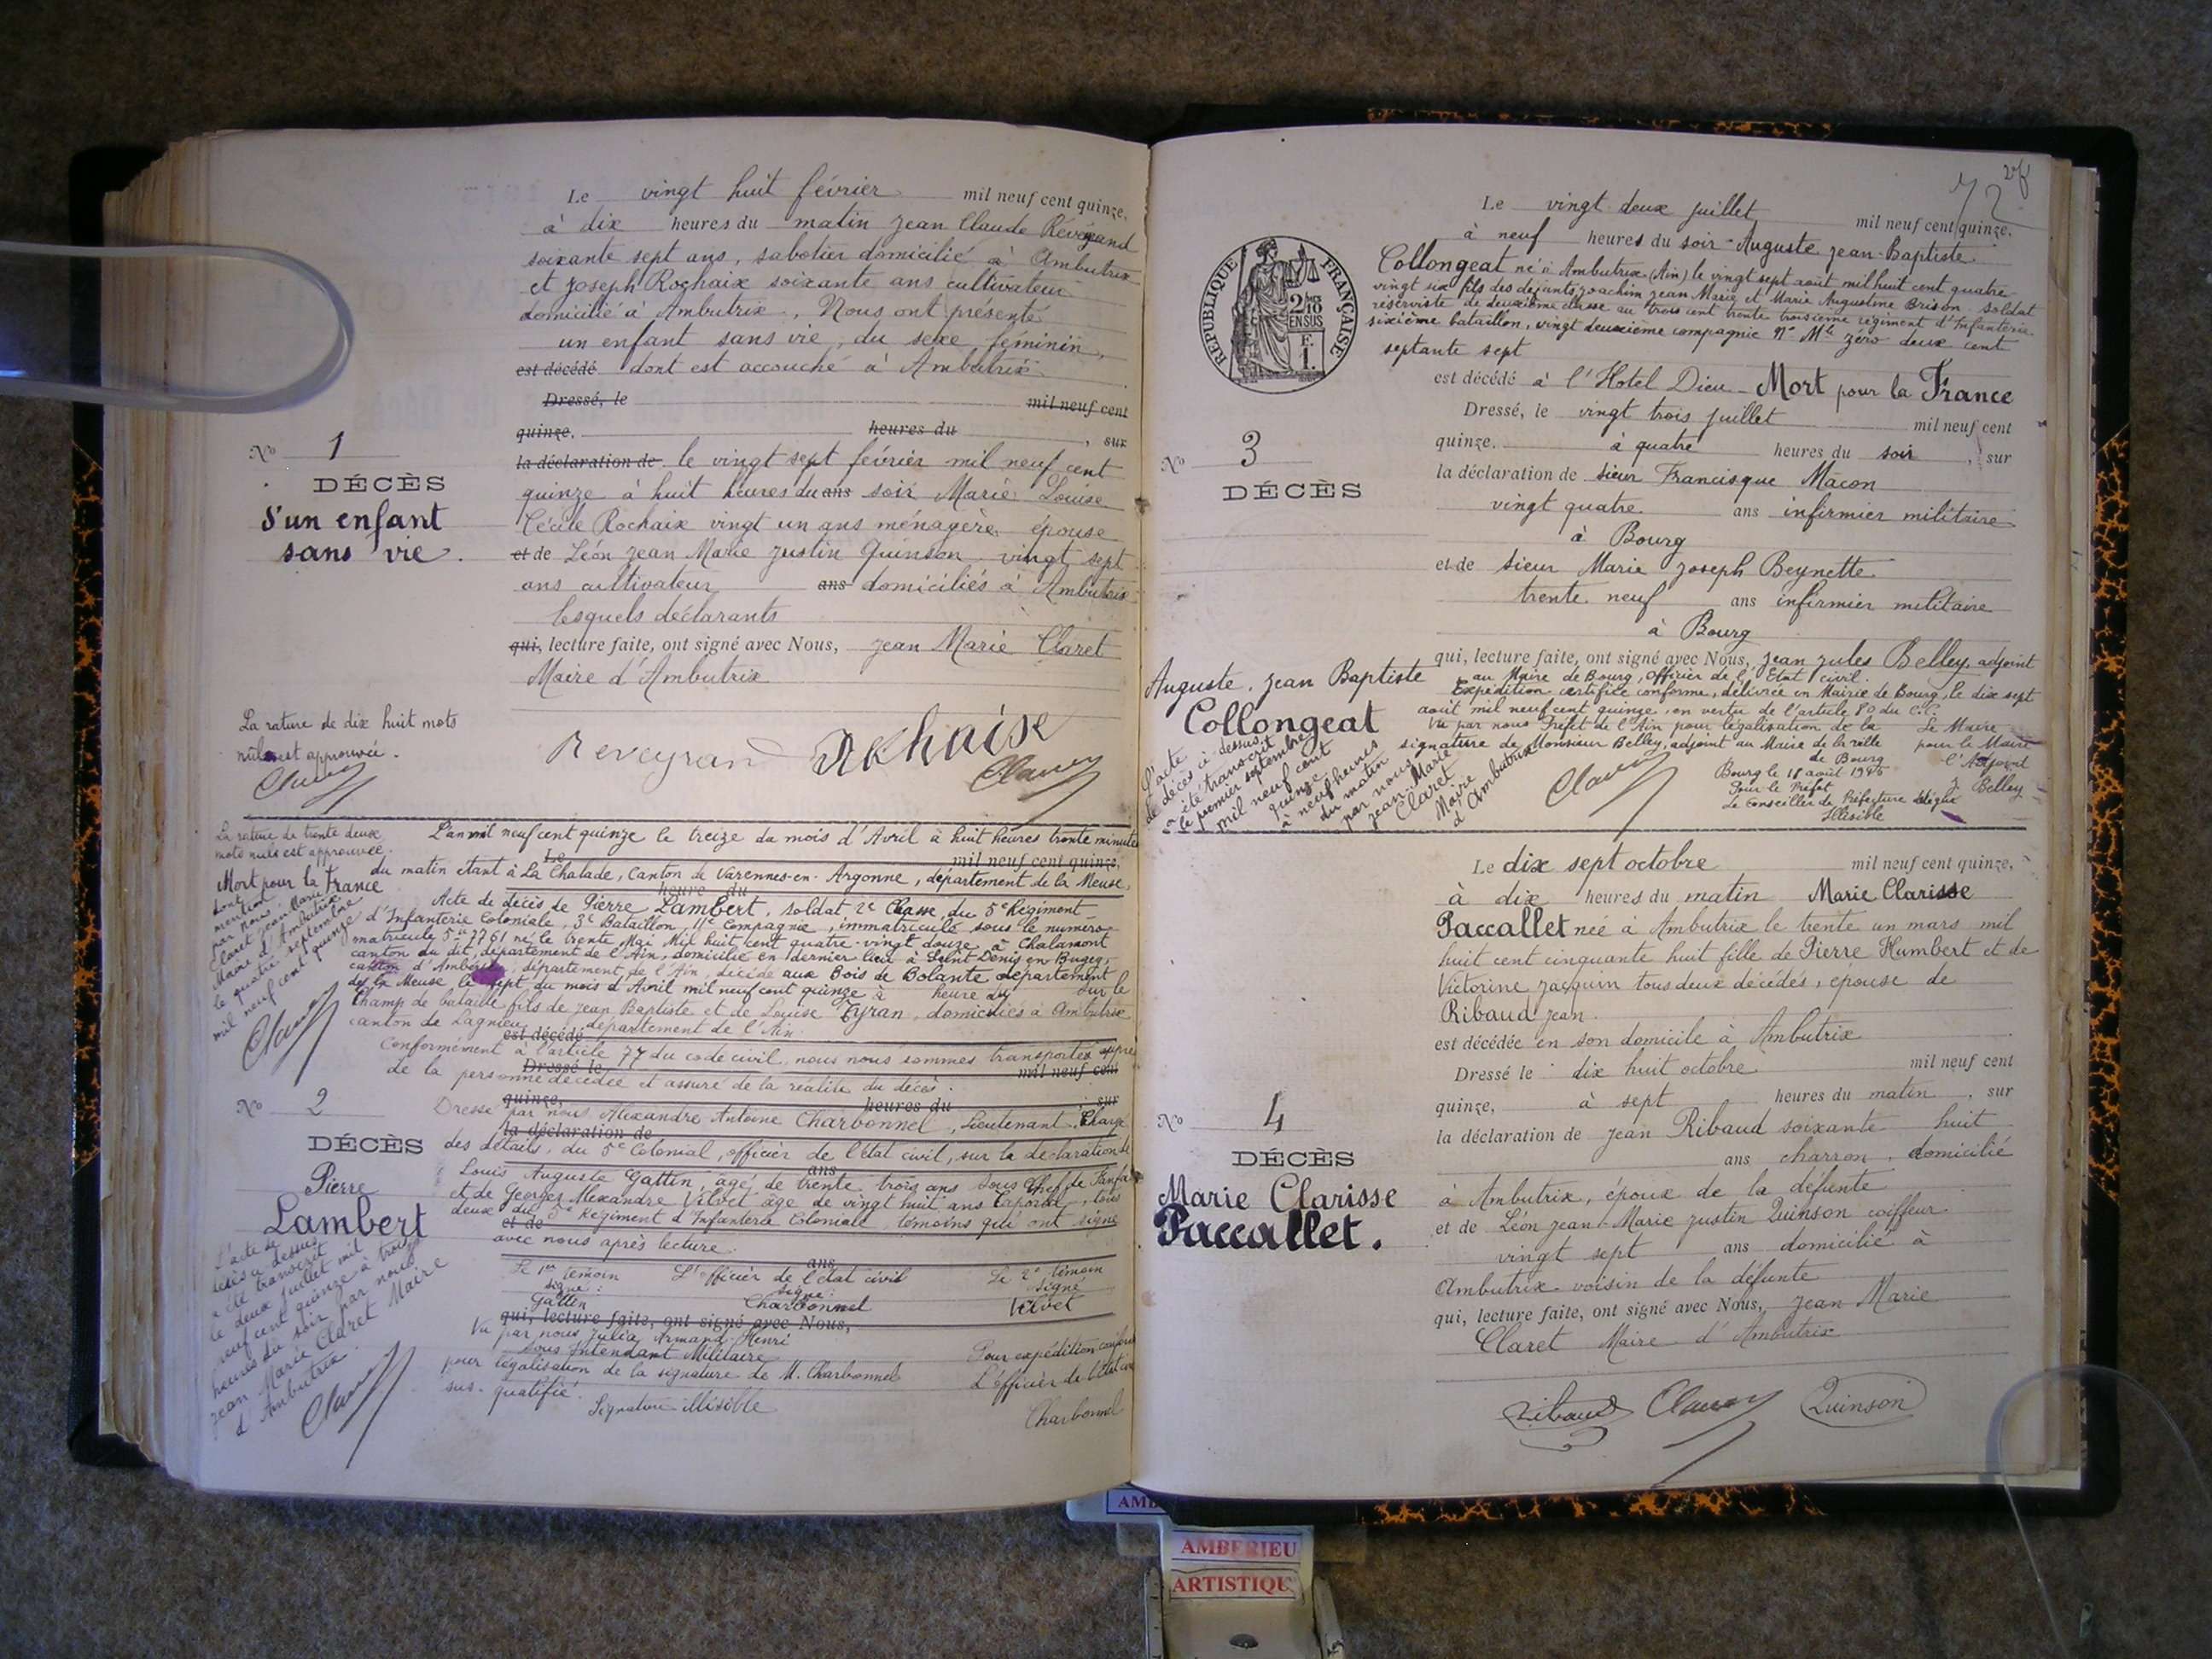 Le vingt huit février mil neuf cent quinze,
à dix heures du matin Jean Claude Révérand
soixante sept ans, sabotier domicilié à Ambutrix
et Joseph Rochaix soixante ans cultivateur
domicilié à Ambutrix, Nous ont présenté
un enfant sans vie, du sexe féminin,
est décédé dont est accouché à Ambutrix
Dressé, le mil neuf cent
quinze, heures du , sur
la déclaration de le vingt sept février mil neuf cent
quinze à huit heures du ans soir Marie Louise
Cécile Rochaix vingt un ans ménagère épouse
et de Léon Jean Marie Justin Quinson vingt sept
ans cultivateur ans domiciliés à Ambutrix
lesquels déclarants
qui, lecture faite, ont signé avec Nous, Jean Marie Claret
Maire d'Ambutrix
No 1
DÉCÈS
d'un enfant
sans vie.
La rature de dix huit mots
nuls est approuvée.
Claret
Reveyrand
Claret
La rature de trente deux
mots nuls est approuvée.
Mort pour la France
dont
mention
par nous
Claret Jean Marie
Maire d'Ambutrix
le quatre septembre
mil neuf cent quinze
Claret
L'an mil neuf cent quinze le treize du mois d'Avril à huit heures trente minutes
Le mil neuf cent quinze,
du matin étant à La Chalade, Canton de Varennes-en-Argonne, département de la Meuse,
heure du
Acte de décès de Pierre Lambert, soldat 2e Classe, du 5e Régiment
d'Infanterie Coloniale, 3e Bataillon, 11e Compagnie, immatriculé sous le numéro
matricule 7761 né le trente Mai Mil huit cent quatre-vingt douze à Chalamont
canton du dit, département de l'Ain, domicilié en dernier lieu à Saint Denis en Bugey,
canton d'Ambérieu, département de l'Ain, décédé aux Bois de Bolante département
de la Meuse le sept du mois d'Avril mil neuf cent quinze à heure du sur le
champ de bataille, fils de Jean Baptiste et de Louise Tyran, domiciliés à Ambutrix
canton de Lagnieu département de l'Ain
est décédé
Conformément à l'article 77 du code civil, nous nous sommes transportés
Dressé le mil neuf cent
de la personne décédée et assuré de la réalité du décès.
quinze, heures du , sur
Dressé par nous Alexandre Antoine Charbonnel, Lieutenant, Chargé
la déclaration de
des détails, du 5e Colonial, officier de l'état civil, sur la déclaration de
ans
Louis Auguste Gattin, âgé de trente trois ans Sous Chef de Fanfare
et de Georges Alexandre Vilvet âgé de vingt huit ans Caporal, tous
deux du 5e Régiment d'Infanterie Coloniale, témoins qui ont signé
et de
avec nous après lecture.
ans
Le 1er témoin L'officier de l'état civil Le 2e témoin
signé: signé: signé
Gattin Charbonnel Vilvet
qui, lecture faite, ont signé avec Nous,
Vu par nous Julia Armand Henri
Sous Intendant Militaire
pour légalisation de la signature de M. Charbonnel
sus-qualifié.
Signature illisible
Pour expédition conforme
L'officier de l'état civil
Charbonnel
No 2
DÉCÈS
Pierre
Lambert
L'acte de
décès ci dessus
a été transcrit
le deux juillet mil
neuf cent quinze à trois
heures du soir par nous
Jean Marie Claret Maire
d'Ambutrix.
Claret
72
RÉPUBLIQUE FRANÇAISE
Le vingt deux juillet mil neuf cent quinze.
à neuf heures du soir Auguste Jean-Baptiste
Collongeat né à Ambutrix (Ain) le vingt sept août mil huit cent quatre
vingt six fils des défunts Joachim Jean Marie et Marie Augustine Brison soldat
réserviste de deuxième classe au trois cent trente troisième régiment d'Infanterie
sixième bataillon, vingt deuxième compagnie No Mle zéro deux cent
septante sept
est décédé à l'Hotel Dieu - Mort pour la France
Dressé, le vingt trois juillet mil neuf cent
quinze. à quatre heures du soir, sur
la déclaration de sieur Francisque Macon
vingt quatre ans infirmier militaire
à Bourg
et de sieur Marie Joseph Beynette
trente neuf ans infirmier militaire
à Bourg
qui, lecture faite, ont signé avec Nous, Jean Jules Belley, adjoint
au Maire de Bourg, officier de l'Etat civil.
Expédition certifiée conforme, délivrée en Mairie de Bourg, le dix sept
août mil neuf cent quinze, en vertu de l'article 80 du C.C.
Vu par nous Préfet de l'Ain pour légalisation de la
signature de Monsieur Belley, adjoint au Maire de la ville
de Bourg
Bourg le 18 août 1915
Pour le Préfet
Le Conseiller de Préfecture délégué
Illisible
Le Maire
pour le Maire
l'Adjoint
J. Belley
Claret
No 3
DÉCÈS
Auguste, Jean Baptiste
Collongeat
L'acte
de décès ci-dessus
a été transcrit
le premier septembre
mil neuf cent
quinze
à neuf heures
du matin
par nous
Jean-Marie
Claret
Maire
d'Ambutrix
Le dix sept octobre mil neuf cent quinze,
à dix heures du matin Marie Clarisse
Paccallet née à Ambutrix le trente un mars mil
huit cent cinquante huit fille de Pierre Humbert et de
Victorine Jacquin tous deux décédés, épouse de
Ribaud Jean.
est décédée en son domicile à Ambutrix
Dressé le dix huit octobre mil neuf cent
quinze, à sept heures du matin, sur
la déclaration de Jean Ribaud soixante huit
ans charron, domicilié
à Ambutrix, époux de la défunte
et de Léon Jean-Marie Justin Quinson coiffeur
vingt sept ans domicilié à
Ambutrix voisin de la défunte
qui, lecture faite, ont signé avec Nous, Jean Marie
Claret Maire d'Ambutrix
No 4
DÉCÈS
Marie Clarisse
Paccallet.
Ribaud Claret Quinson
AMBERIEU
ARTISTIQU